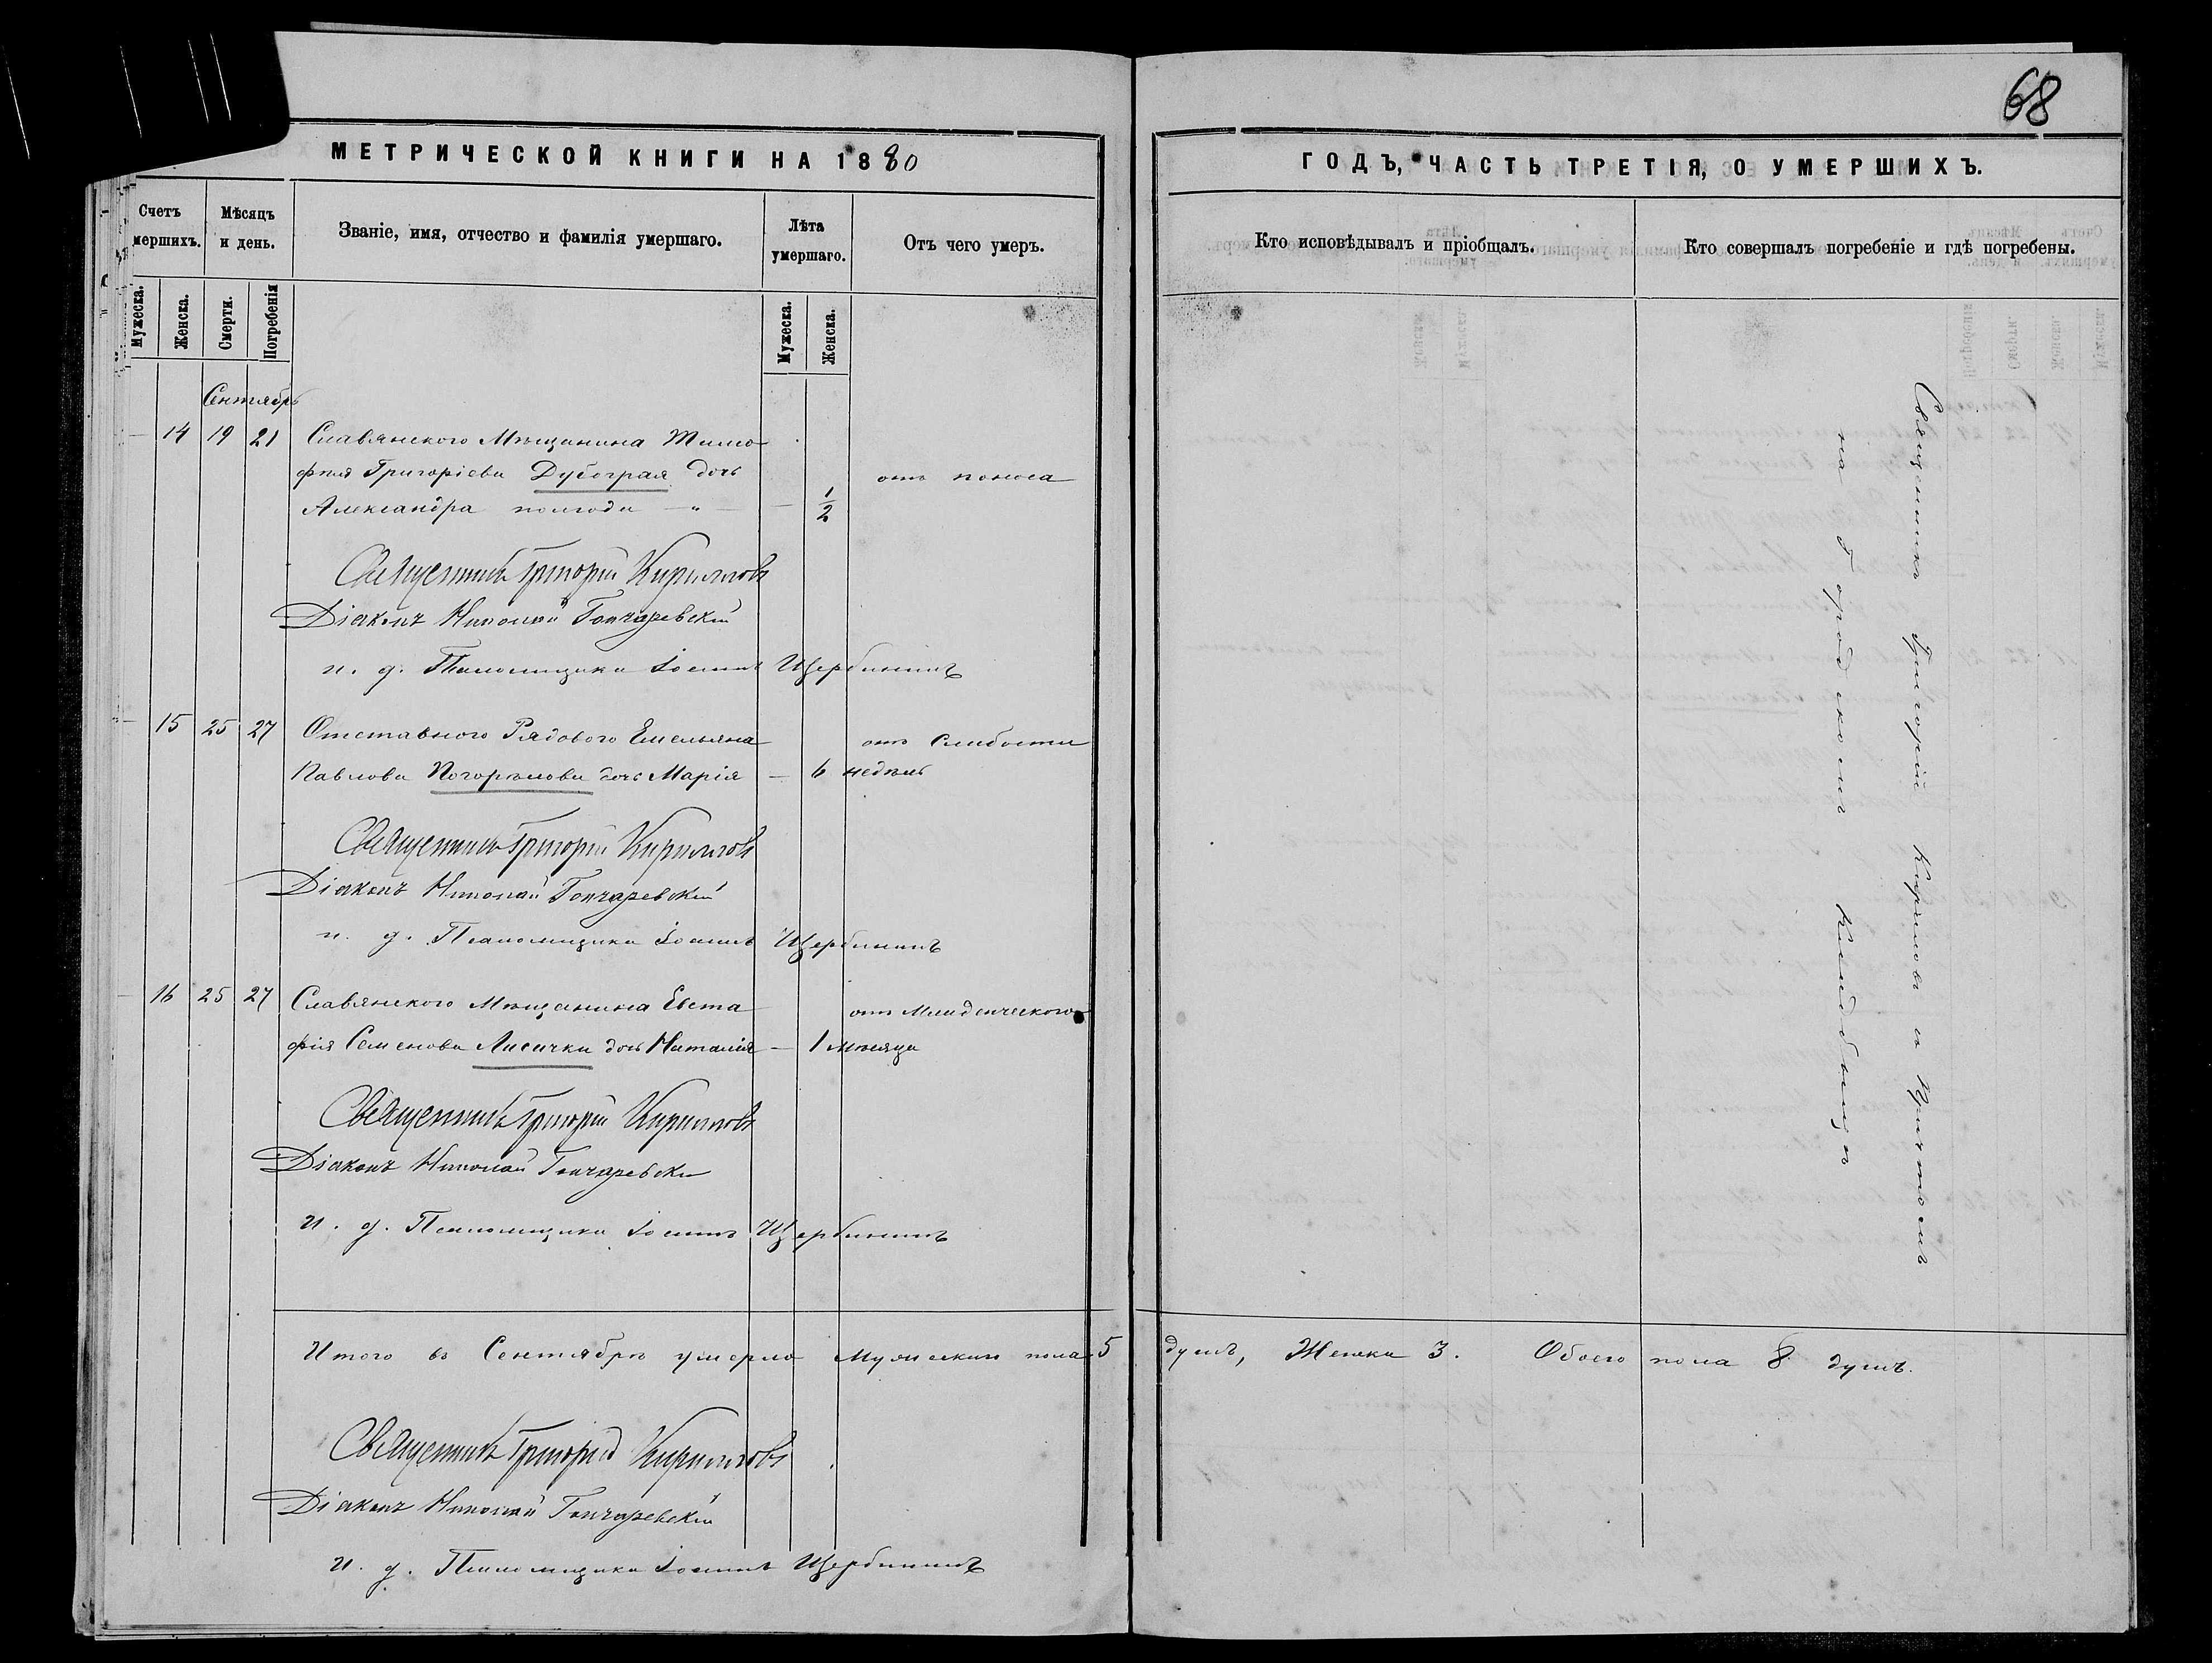 68
МЕТРИЧЕСКОЙ КНИГИ НА 1880
ГОДЪ, ЧАСТЬ ТРЕТІЯ, О УМЕРШИХЪ.
Счетъ
мершихъ.
Мѣсяцъ
и день.
Званіе, имя, отчество и фамилія умершаго.
Лѣта
умершаго.
Отъ чего умеръ.
Кто исповѣдывалъ и пріобщалъ.
Кто совершалъ погребеніе и гдѣ погребены.
Мужеска.
Женска.
Смерти.
Погребенія
Мужеска.
Женска.
Сентябрь
— 14 19 21 Славянского Мѣщанина Тимо
фея Григоріева Дубограя дочь отъ поноса
Александра полгода — „ — — 1/2
Священникъ Григорій Кирилловъ
Діаконъ Николай Гончаревскій
и. д. Псаломщика Іоаннъ Щербининъ
— 15 25 27 Отставного Рядового Емельяна отъ Слабости
Павлова Погорѣлова дочь Марія — 6 недѣль
Священникъ Григорій Кирилловъ
Діаконъ Николай Гончаревскій
и. д. Псаломщика Іоаннъ Щербининъ
— 16 25 27 Славянского Мѣщанина Евста
отъ Младенческого
фія Семенова Лисички дочь Наталія — 1 мѣсяца
Священникъ Григорій Кирилловъ
Діаконъ Николай Гончаревскій
и. д. Псаломщика Іоаннъ Щербининъ
Священникъ Григорій Кириловъ съ Причтомъ
на Городскомъ Кладбищѣ
Итого въ Сентябрѣ умерло Мужеска пола 5 душъ, Женска 3. Обоего пола 8 душъ.
Священникъ Григорій Кирилловъ
Діаконъ Николай Гончаревскій
и. д. Псаломщика Іоаннъ Щербининъ